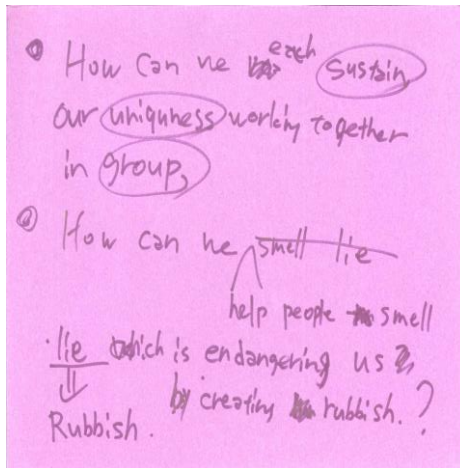 How can we each sustain
our uniquness working together
in group,
How can we smell lie
help people smell
lie which is endangering us
by creating rubbish.?
Rubbish.